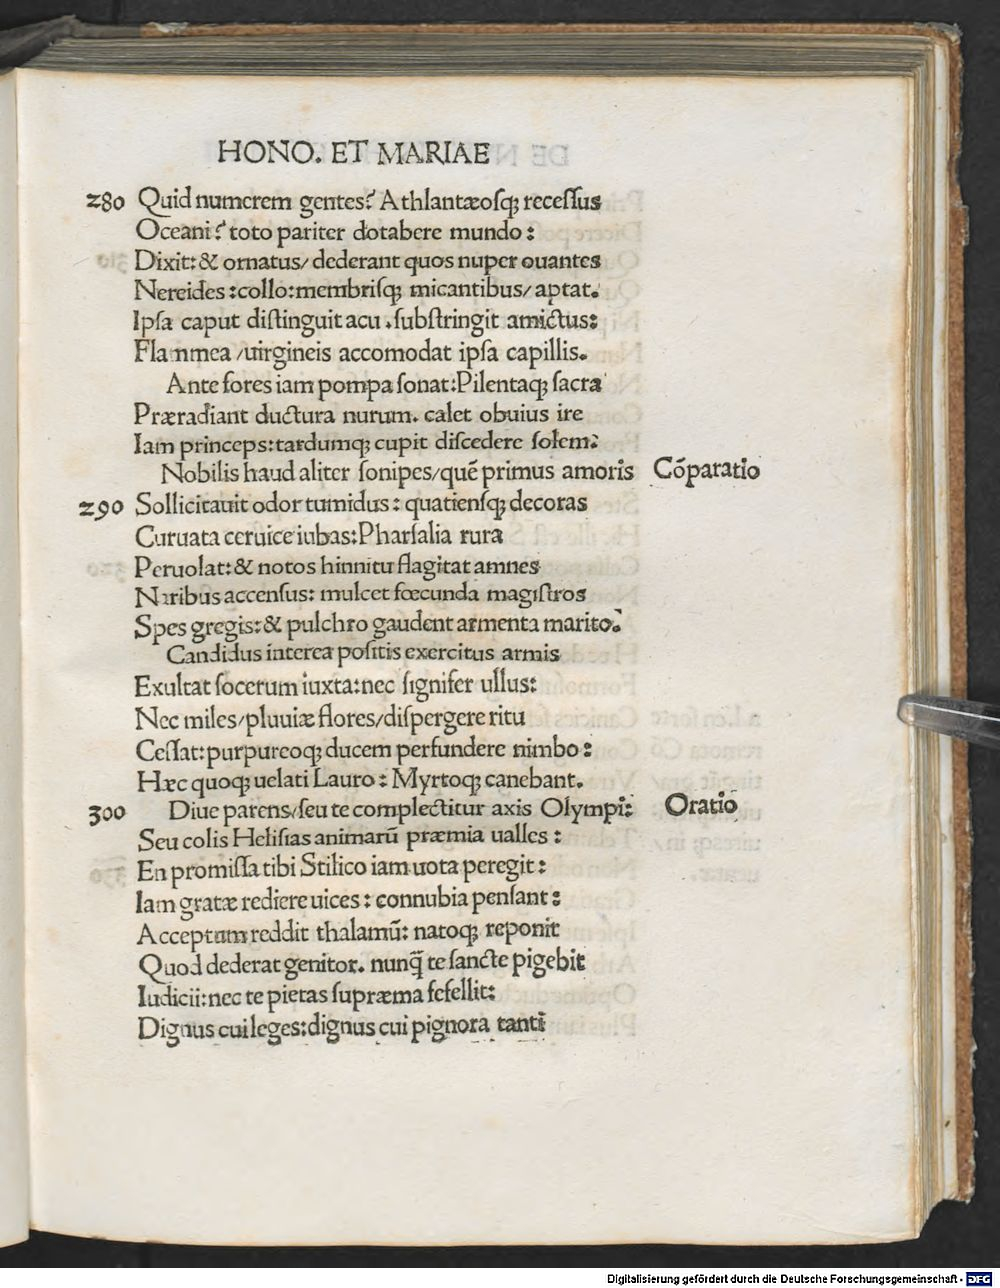 HONO. ET MARIAE
280 Quid numerem gentes? Athlantæoſq; receſſus
Oceani? toto pariter dotabere mundo:
Dixit: & ornatus/ dederant quos nuper ouantes
Nereides: collo: membriſq; micantibus/ aptat.
Ipſa caput diſtinguit acu. ſubſtringit amictus:
Flammea /uirgineis accomodat ipſa capillis.
Ante fores iam pompa ſonat: Pilentaq; ſacra
Præradiant ductura nurum. calet obuius ire
Iam princeps: tardumq; cupit diſcedere ſolem:
Nobilis haud aliter ſonipes/ quē primus amoris Cōparatio
290 Sollicitauit odor tumidus: quatienſq; decoras
Curuata ceruice iubas: Pharſalia rura
Peruolat: & notos hinnitu flagitat amnes
Naribus accenſus: mulcet fœcunda magiſtros
Spes gregis: & pulchro gaudent armenta marito.
Candidus interea poſitis exercitus armis
Exultat ſocerum iuxta: nec ſignifer ullus:
Nec miles/ pluuiæ flores/ diſpergere ritu
Ceſſat: purpureoq; ducem perfundere nimbo:
Hæc quoq; uelati Lauro: Myrtoq; canebant.
300 Diue parens/ ſeu te complectitur axis Olympi: Oratio
Seu colis Heliſias animarū præmia ualles:
En promiſſa tibi Stilico iam uota peregit:
Iam gratæ rediere uices: connubia penſant:
Acceptum reddit thalamū: natoq; reponit
Quod dederat genitor. nunq̄ te ſancte pigebit
Iudicii: nec te pietas ſupræma fefellit:
Dignus cui leges: dignus cui pignora tanti
Digitalisierung gefördert durch die Deutsche Forschungsgemeinschaft - DFG